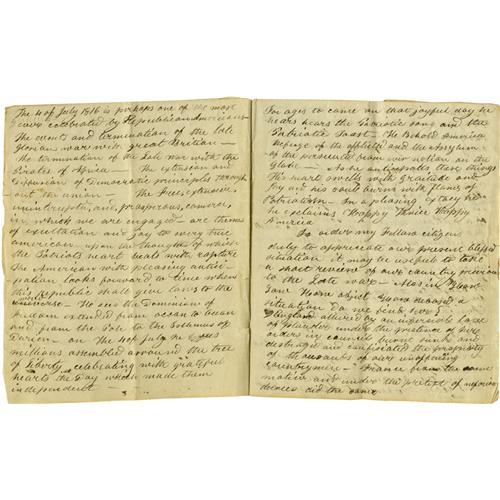 The 4 of July 1816 is perhaps one of the most
ever celebrated by Republican Americans
The events and termination of the late
Glorian war with great Britian —
the termination of the late war with the
Pirates of Africa — The extension and
Expansion of Democratic principles through
out the union — The Free, extensive,
uninterrupted, and, prosperous, commerce,
in which we are engaged — are themes
of exultation and joy to every true
american — upon the thoughts of which
the Patriots heart beat with rapture
The American with pleasing antici-
pation looks forward to time when
this republic shall give laws to the
universe — He sees the Dominion of
freedom extended from ocean to ocean
and from the Pole to the Isthmus of
Darien — On the 4 of July he sees
millions assembled arround the tree
of liberty, celebrating with grateful
hearts the Day which made them
independent —
For ages to come on that joyful day he
hears the Patriotic song and the
Patriotic Toast — He Behold America
Refuge of the afflicted and the Asylum
of the persecuted from every nation on the
Globe — As he anticipates these things
His heart swells with Gratitude and
Joy and his soul burns with flames of
Patriotism — In a pleasing extacy he
he exclaims Happy Thrice Happy
America
In order my Fellow citizens
duly to appreciate our present blessed
situation it may be useful to take
a short review of our country previous
to the Late war —
situation do we find her?
England allured by an insatiable
of plunder under the pretence of her
orders in council
and confiscated the property
of thousands of our unoffending
countrymen — France from the same
motive and under the pretext of
decrees did the same